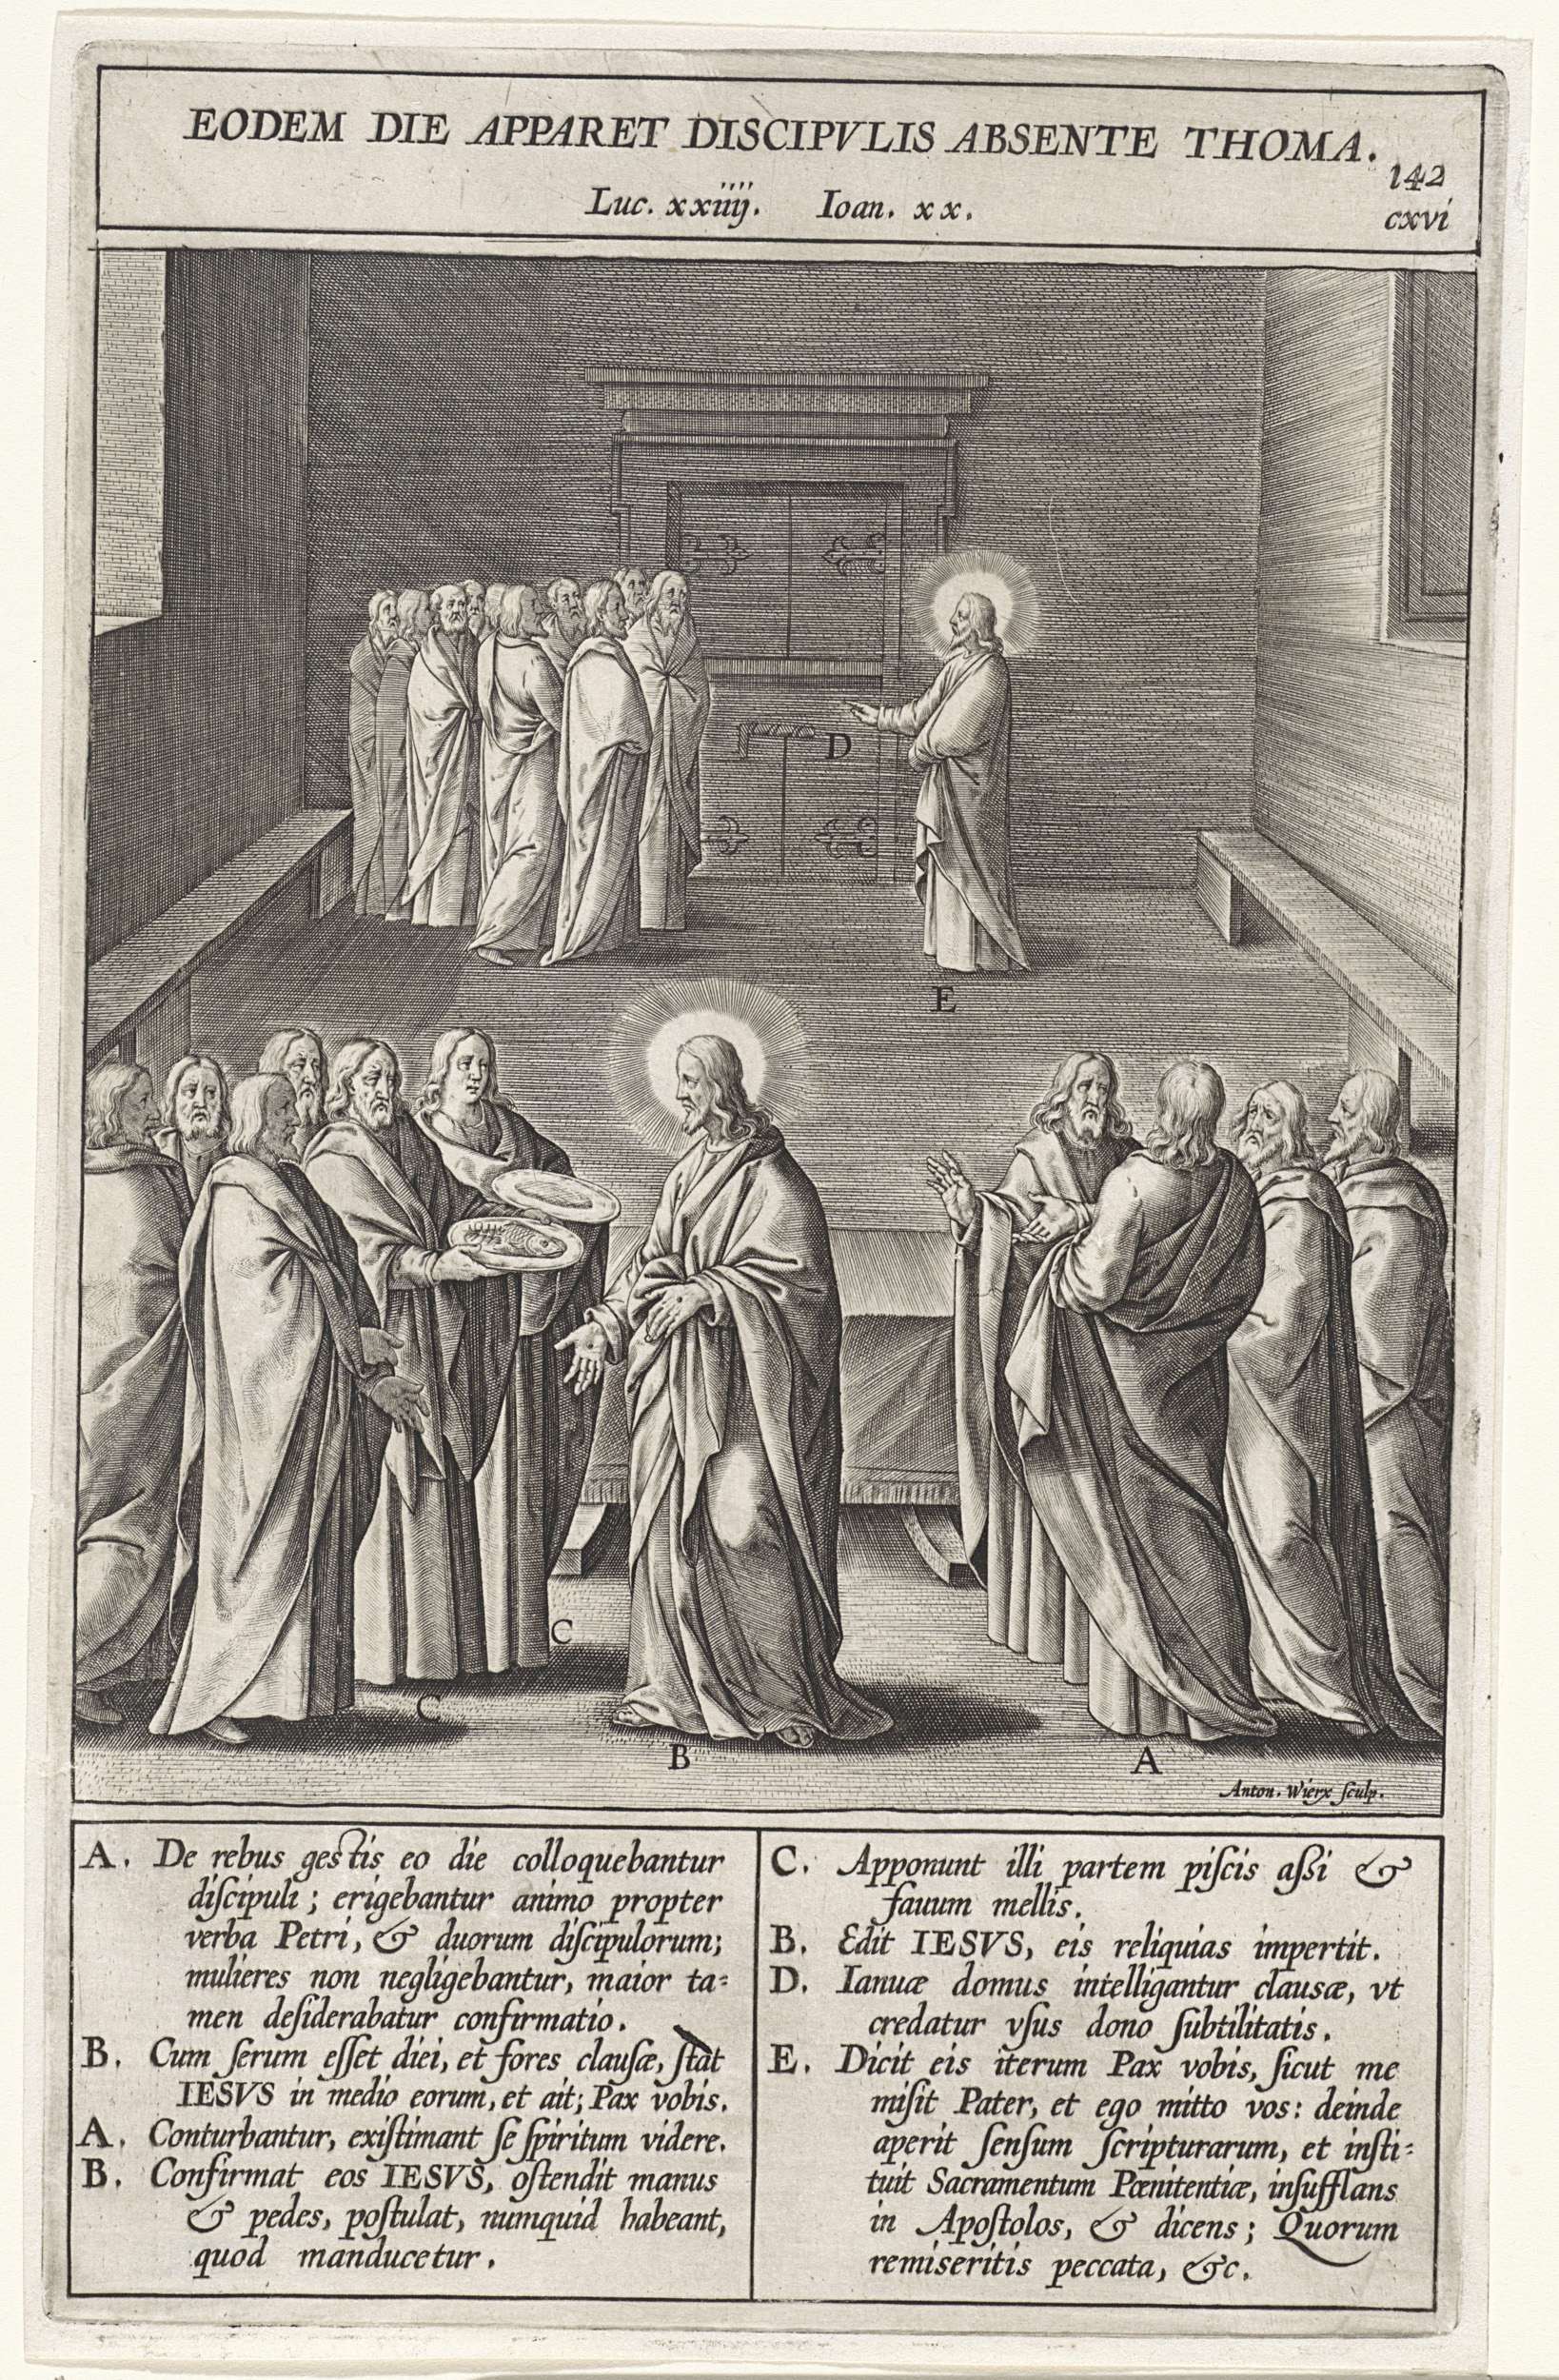 EODEM DIE APPARET DISCIPVLIS ABSENTE THOMA.
142
Luc. xxiiij. Ioan. xx.
cxvi
D
E
C
C
B
A
Anton. Wierx ſculp.
A. De rebus gestis eo die colloquebantur
diſcipuli; erigebantur animo propter
verba Petri, & duorum diſcipulorum;
mulieres non negligebantur, maior ta=
men deſiderabatur confirmatio.
B. Cum ſerum eſſet diei, et fores clauſæ, ſtat
IESVS in medio eorum, et ait; Pax vobis.
A. Conturbantur, exiſtimant ſe ſpiritum videre.
B. Confirmat eos IESVS, oſtendit manus
& pedes, poſtulat, numquid habeant,
quod manducetur.
C. Apponunt illi partem piſcis aſsi &
fauum mellis.
B. Edit IESVS, eis reliquias impertit.
D. Ianuæ domus intelligantur clausæ, vt
credatur vſus dono ſubtilitatis.
E. Dicit eis iterum Pax vobis, ſicut me
miſit Pater, et ego mitto vos: deinde
aperit ſenſum ſcripturarum, et inſti=
tuit Sacramentum Pœnitentiæ, inſufflans
in Apoſtolos, & dicens; Quorum
remiseritis peccata, &c.